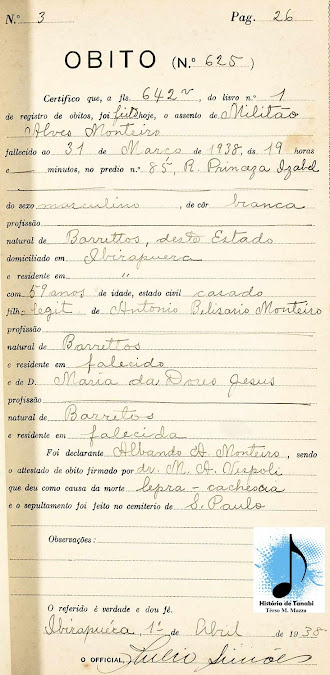 N.º 3 Pag. 26
OBITO (N.º 625)
Certifico que, a fls. 642v, do livro n.º 1
de registro de obitos, foi feito hoje, o assento de Militão
Alves Monteiro
fallecido ao 31 de Março de 1938, ás 19 horas
e — minutos, no predio n.º 85, R. Princeza Izabel
do sexo masculino, de côr branca
profissão
natural de Barrettos, deste Estado
domiciliado em Ibirapuera
e residente em "
com 59 anos de idade, estado civil casado
filho legit de Antonio Belisario Monteiro
profissão
natural de Barrettos
e residente em falecido
e de D. Maria da Dores Jesus
profissão
natural de Barretos
e residente em falecida
Foi declarante Alvando A. Monteiro, sendo
o attestado de obito firmado por dr. M. A. Vespoli
que deu como causa da morte lepra - cachexia
e o sepultamento foi feito no cemiterio de S. Paulo
Observações:
O referido é verdade e dou fé.
Ibirapuéra, 1º de Abril de 1938
O OFFICIAL, Julio Simões
História de Tanabi
Tirso M. Mazza